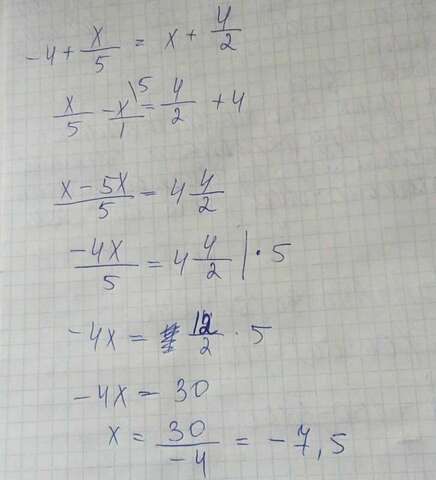 -4 + x/5 = x + 4/2
x/5 - x/1 \5 = 4/2 + 4
x - 5x/5 = 4 4/2
-4x/5 = 4 4/2 | · 5
-4x = 12/2 · 5
-4x = 30
x = 30/-4 = -7,5